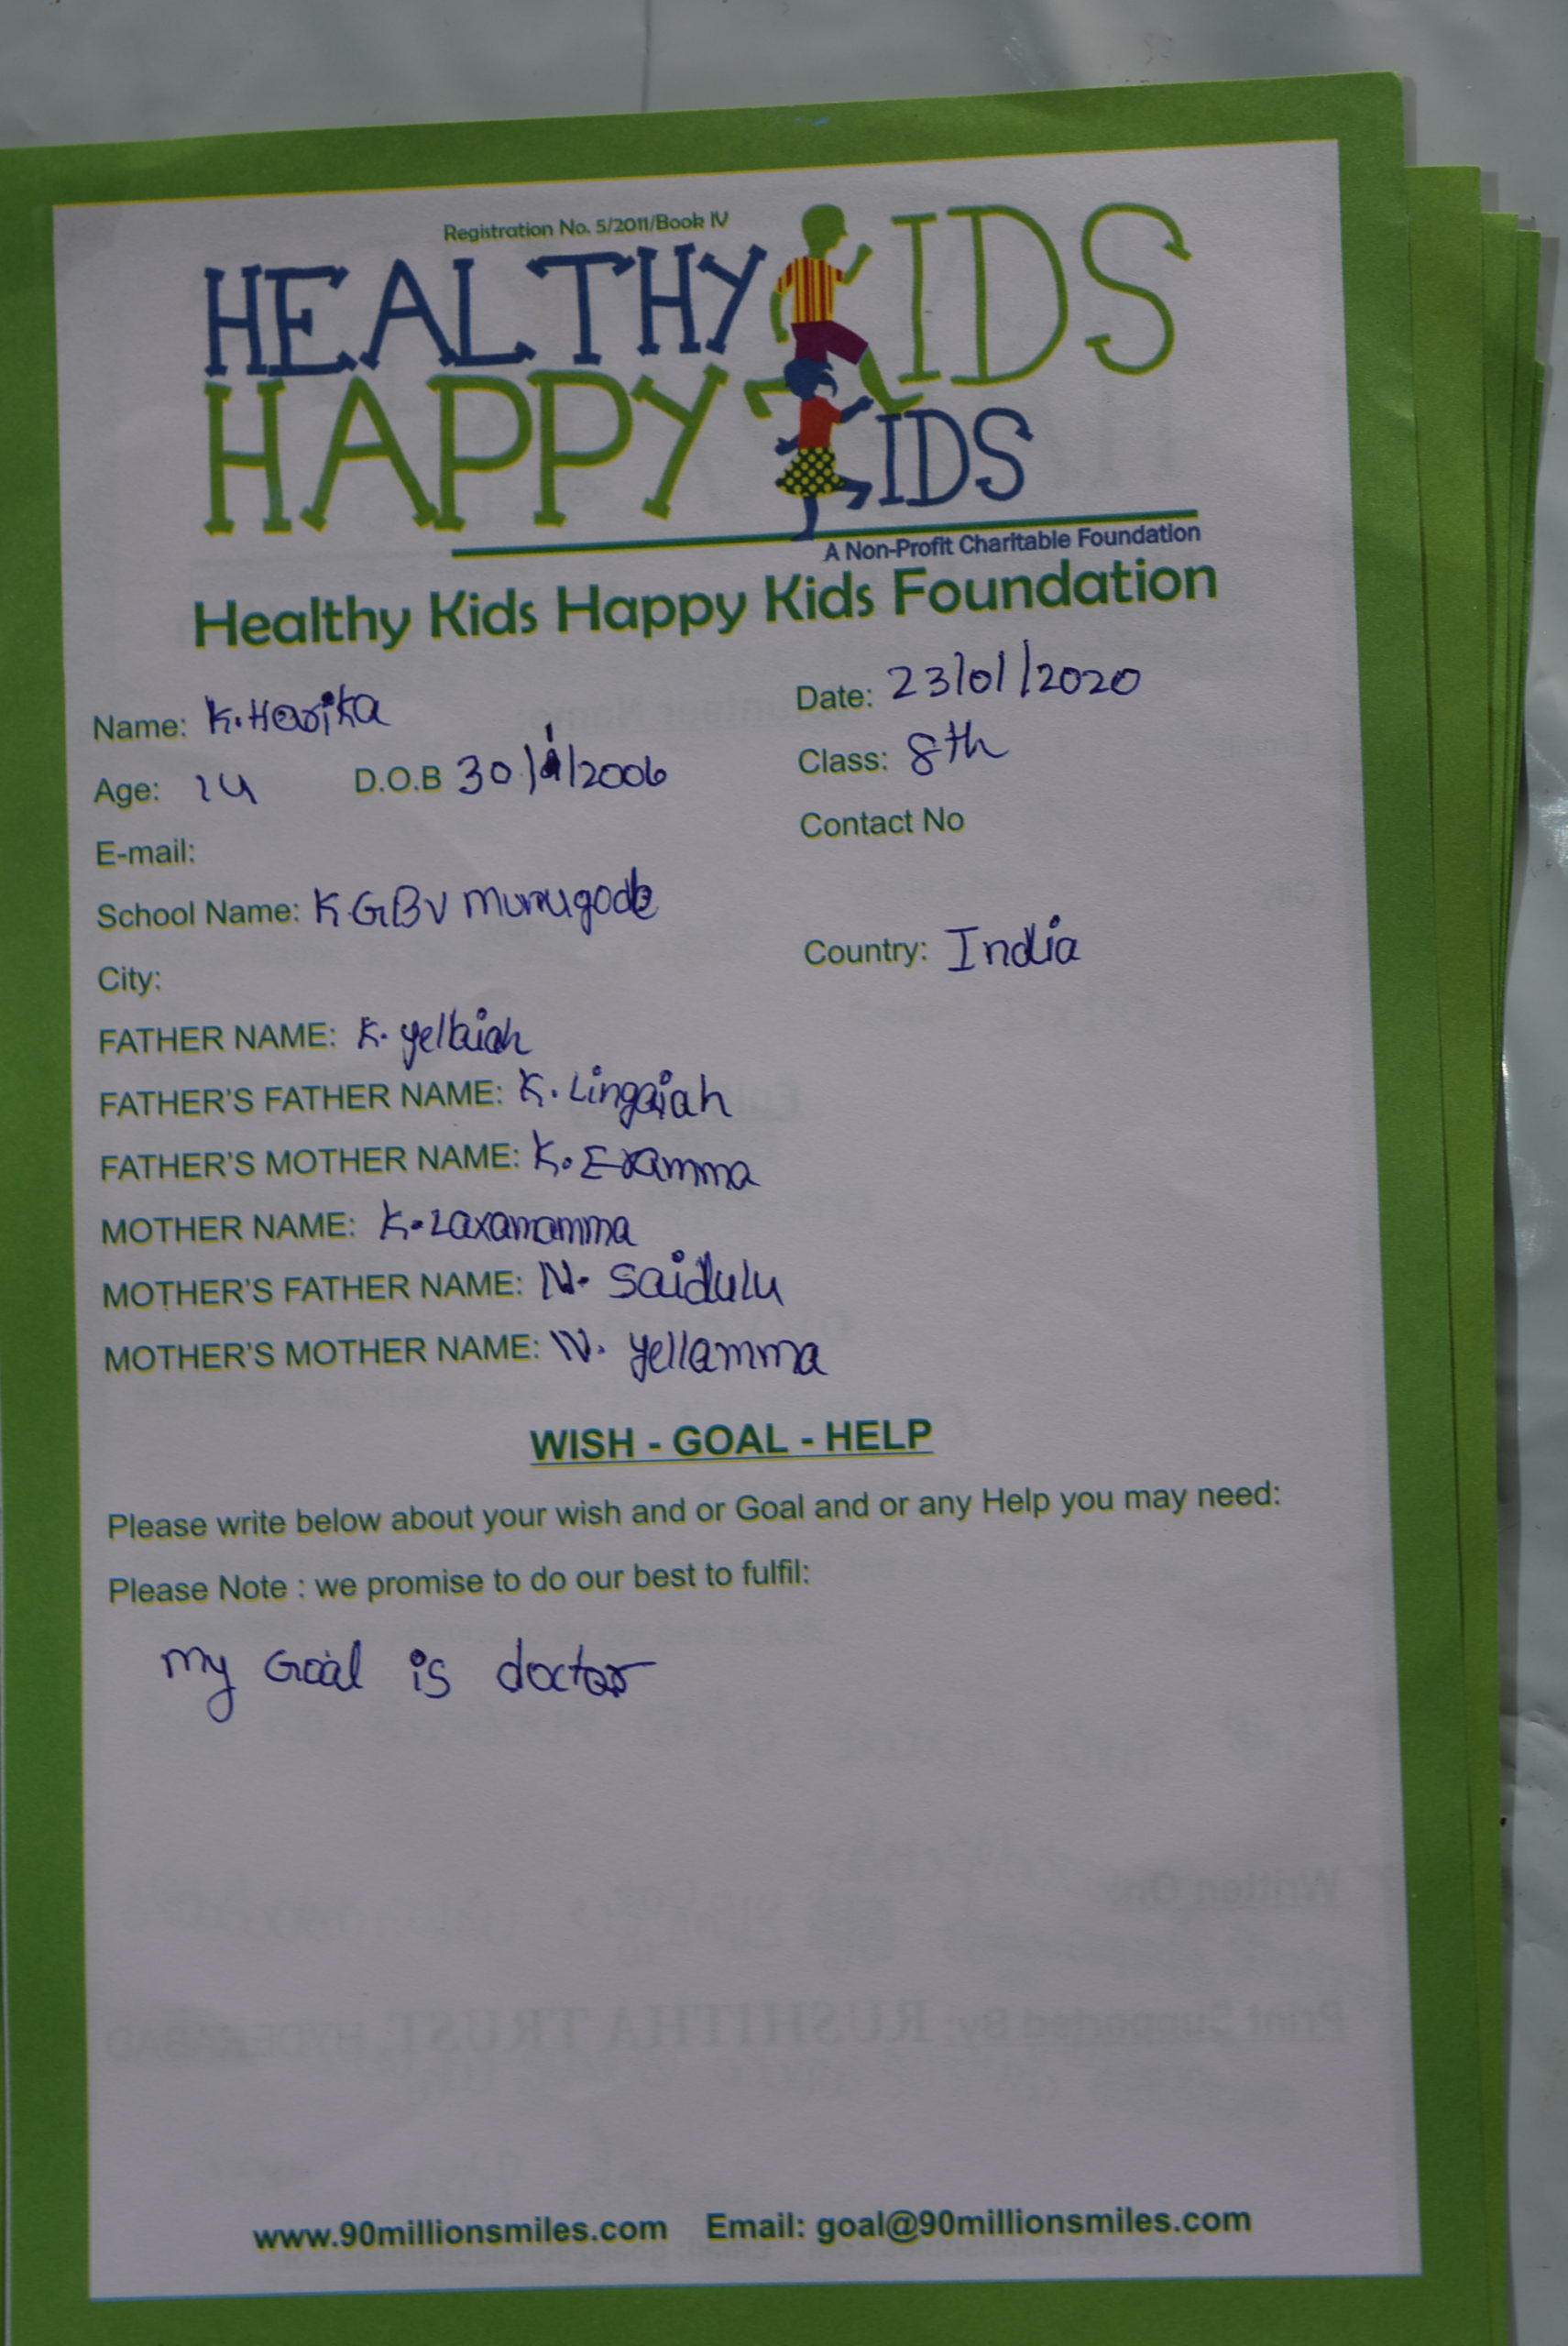 Registration No. 5/2011/Book IV
HEALTHY KIDS
HAPPY KIDS
A Non-Profit Charitable Foundation
Healthy Kids Happy Kids Foundation
Name: K.Harika Date: 23/01/2020
Age: 14 D.O.B 30/1/2006 Class: 8th
E-mail: Contact No
School Name: K.GBV
City: Country: India
FATHER NAME: K. yellaiah
FATHER'S FATHER NAME: K. Lingaiah
FATHER'S MOTHER NAME: K. Eramma
MOTHER NAME: K. Laxamamma
MOTHER'S FATHER NAME: N. Saidulu
MOTHER'S MOTHER NAME: N. yellamma
WISH - GOAL - HELP
Please write below about your wish and or Goal and or any Help you may need:
Please Note : we promise to do our best to fulfil:
my Goal is doctor
www.90millionsmiles.com Email: goal@90millionsmiles.com